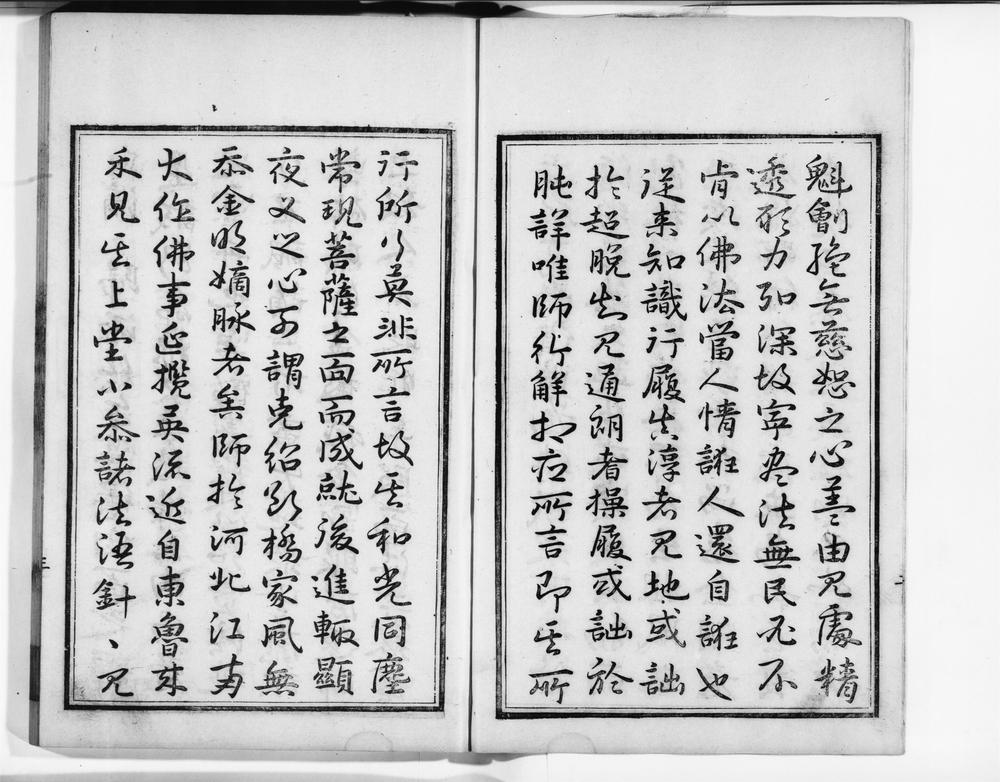 魁劊絕無慈恕之心蓋由見處精
透願力弘深故寧盡法無民死不
肯以佛法當人情誑人還自誑也
從来知識行履真淳者見地或詘
扵超脫知見通朗者操履或詘於
肫詳唯師行解相應所言即其所
行所行莫非所言故其和光同塵
常現菩薩之面而成就後進輒顯
夜叉之心可謂克紹斷橋家風無
忝金明嫡脉者矣師扵河北江南
大作佛事延攬英流近自東魯來
禾見其上堂小參諸法語針〻見